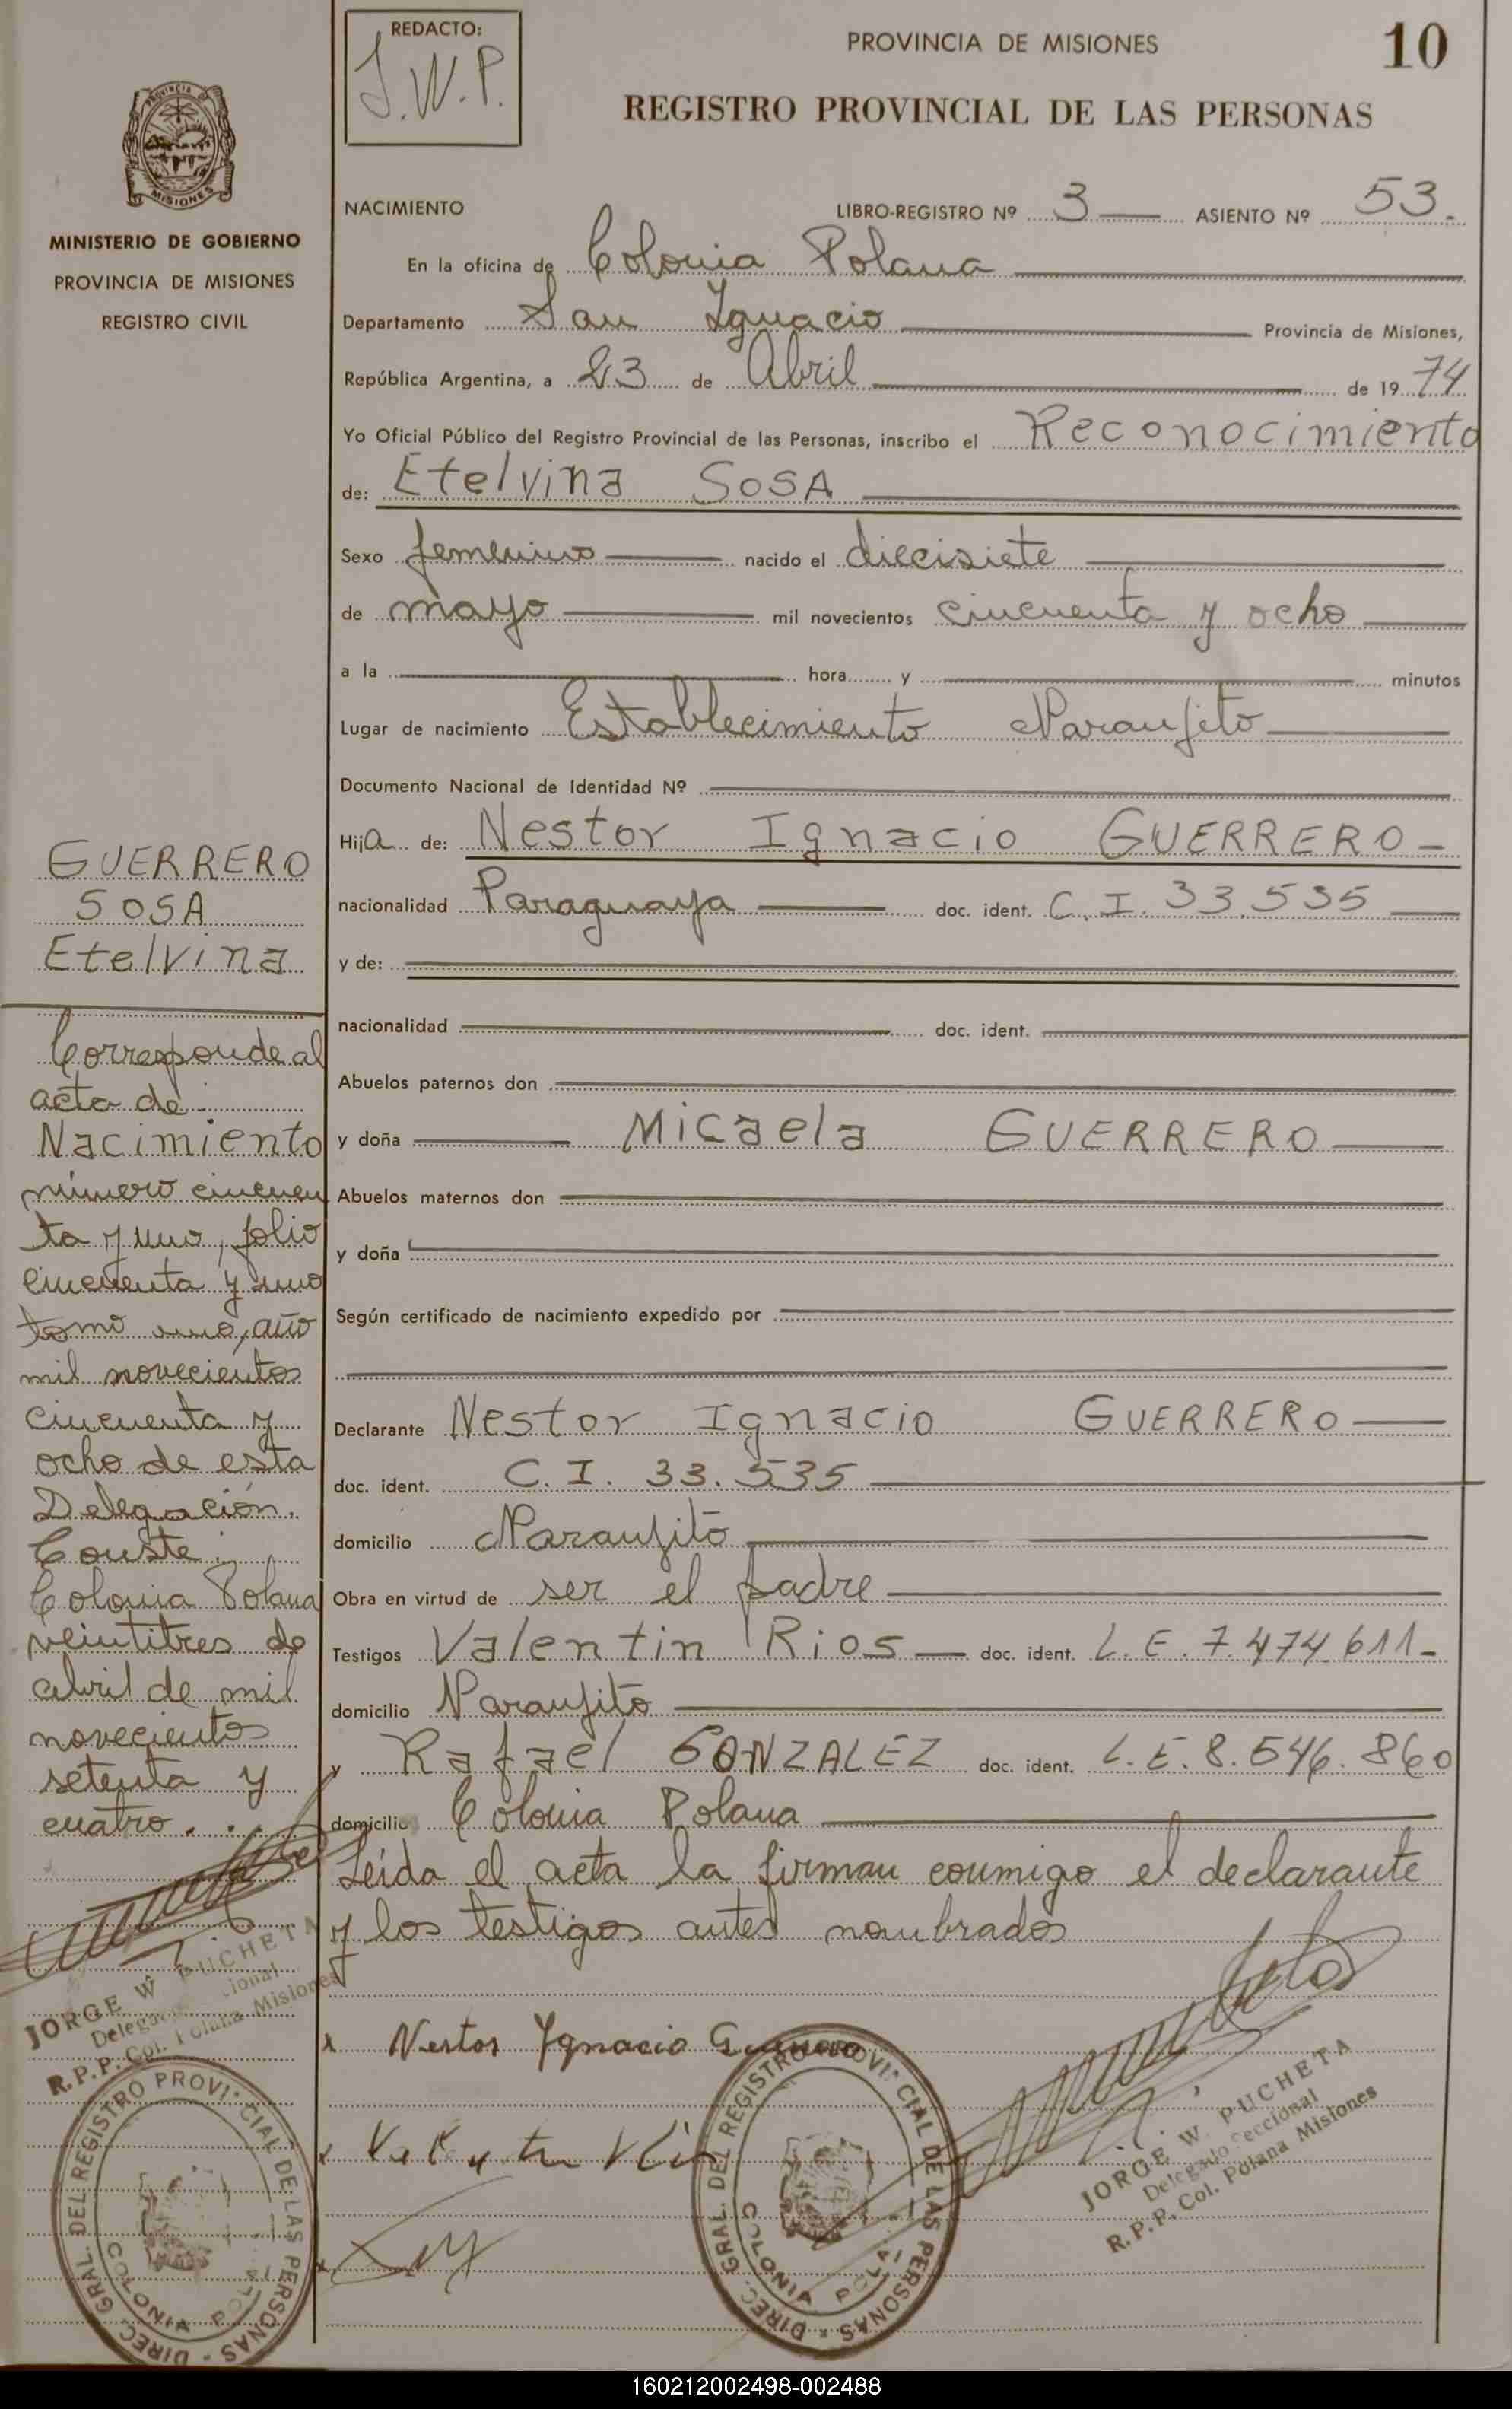 REDACTO:
J.W.P.
PROVINCIA DE MISIONES
10
REGISTRO PROVINCIAL DE LAS PERSONAS
PROVINCIA DE
MISIONES
MINISTERIO DE GOBIERNO
PROVINCIA DE MISIONES
REGISTRO CIVIL
NACIMIENTO LIBRO-REGISTRO Nº 3 ASIENTO Nº 53.
En la oficina de Colonia Polana
Departamento San Ignacio Provincia de Misiones,
República Argentina, a 23 de Abril de 19 74
Yo Oficial Público del Registro Provincial de las Personas, inscribo el Reconocimiento
de: Etelvina SOSA
Sexo femenino nacido el diecisiete
de mayo mil novecientos cincuenta y ocho
a la hora y minutos
Lugar de nacimiento Establecimiento Naranjito
Documento Nacional de Identidad Nº
Hija de: Nestor Ignacio GUERRERO
nacionalidad Paraguaya doc. ident. C. I. 33.535
y de:
nacionalidad doc. ident.
Abuelos paternos don
y doña Micaela GUERRERO
Abuelos maternos don
y doña
Según certificado de nacimiento expedido por
Declarante Nestor Ignacio GUERRERO
doc. ident. C. I. 33.535
domicilio Naranjito
Obra en virtud de ser el padre
Testigos Valentin Rios doc. ident. L.E. 7.474.611-
domicilio Naranjito
y Rafael GONZALEZ doc. ident. L.E. 8.546.860
domicilio Colonia Polana
Leída el acta la firman conmigo el declarante
y los testigos antes nombrados
x Nestor Ignacio Guerrero
GUERRERO
SOSA
Etelvina
Corresponde al
acta de
Nacimiento
número cincuen
ta y uno, folio
cincuenta y uno
tomo uno, año
mil novecientos
cincuenta y
ocho de esta
Delegación.
Conste.
Colonia Polana
veintitres de
abril de mil
novecientos
setenta y
cuatro.
JORGE W. PUCHETA
R.P.P. Col. Polana Misiones
DIREC. GRAL. DEL REGISTRO PROVINCIAL DE LAS PERSONAS
COLONIA POLANA
DIREC. GRAL. DEL REGISTRO PROVINCIAL DE LAS PERSONAS
COLONIA POLANA
JORGE W. PUCHETA
Delegado Seccional
R.P.P. Col. Polana Misiones
160212002498-002488